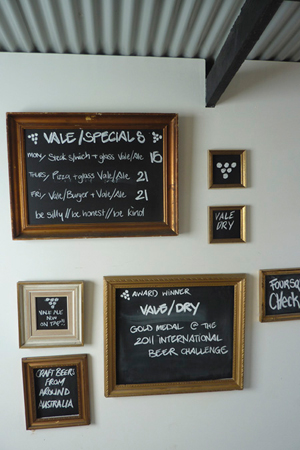 VALE/SPECIALS
MON/ Steak s/wich + glass Vale/Ale 15
THURS/ Pizza + glass Vale/Ale 21
FRI/ Vale/Burger + Vale/Ale 21
be silly//be honest//be kind
VALE
DRY
VALE ALE
NOW
ON TAP!!
AWARD WINNER
VALE/DRY
GOLD MEDAL @ THE
2011 INTERNATIONAL
BEER CHALLENGE
FOURSQ
CHECK
CRAFT BEERS
FROM
AROUND
AUSTRALIA